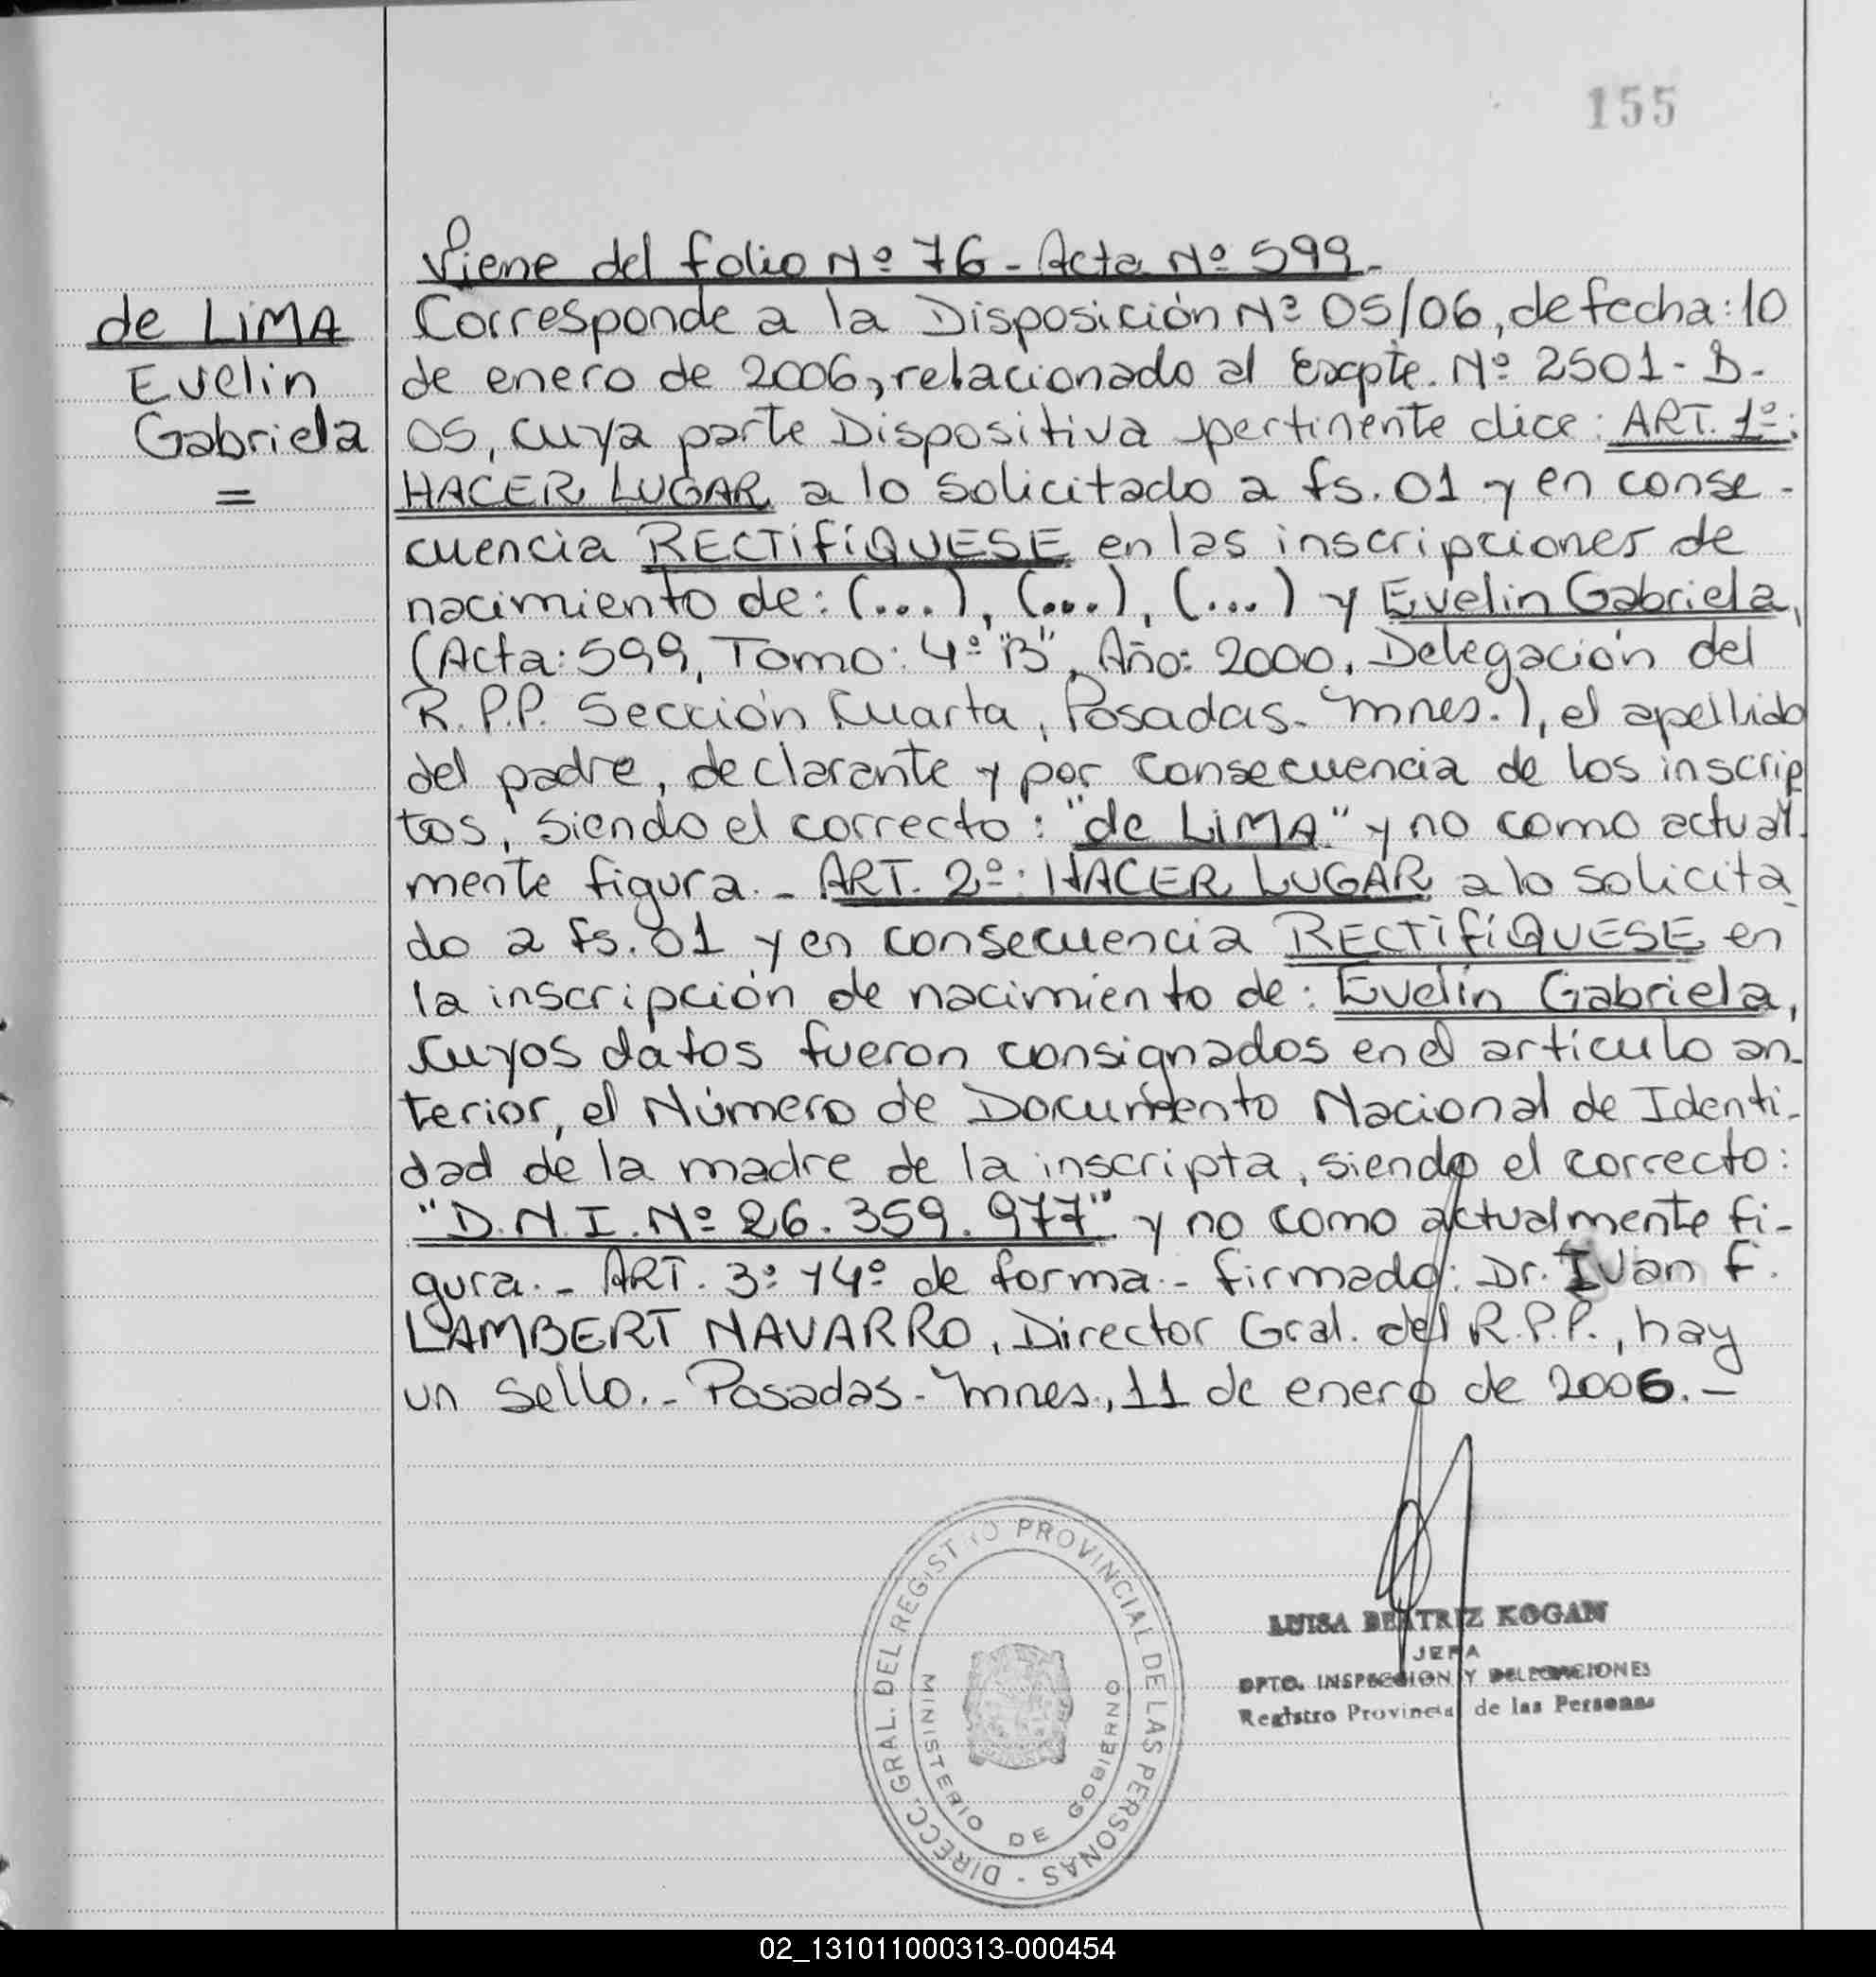 155
Viene del folio Nº 76 - Acta Nº 599.-
de LiMA
Evelin
Gabriela
=
Corresponde a la Disposición Nº 05/06, de fecha: 10
de enero de 2006, relacionado al Expte. Nº 2501- D -
05, cuya parte Dispositiva pertinente dice: ART. 1º:
HACER LUGAR a lo solicitado a fs. 01 y en conse -
cuencia RECTiFíQUESE en las inscripciones de
nacimiento de: (...), (...), (...) y Evelin Gabriela,
(Acta: 599, Tomo: 4º "B", Año: 2000, Delegación del
R.P.P. Sección Cuarta, Posadas - Mnes.), el apellido
del padre, declarante y por consecuencia de los inscrip
tos, siendo el correcto: "de LiMA" y no como actual-
mente figura.- ART. 2º: HACER LUGAR a lo solicita
do a fs. 01 y en consecuencia RECTiFíQUESE en
la inscripción de nacimiento de: Evelin Gabriela,
cuyos datos fueron consignados en el artículo an-
terior, el Número de Documento Nacional de Identi-
dad de la madre de la inscripta, siendo el correcto:
"D.N.I. Nº 26.359.977" y no como actualmente fi-
gura.- ART. 3º y 4º de forma.- firmado: Dr. Ivan F.
LAMBERT NAVARRO, Director Gral. del R.P.P., hay
un sello.- Posadas - Mnes., 11 de enero de 2006.-
DIRECC. GRAL. DEL REGISTRO PROVINCIAL DE LAS PERSONAS -
MINISTERIO DE GOBIERNO
LUISA BEATRIZ KOGAN
JEFA
DPTO. INSPECCION Y DELEGACIONES
Registro Provincial de las Personas
02_131011000313-000454